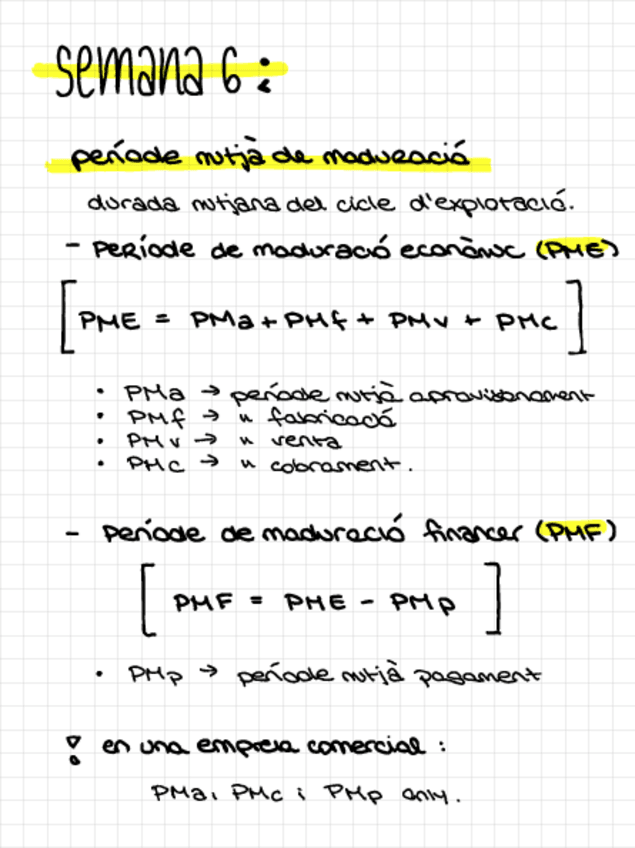 semana 6 :
període mitjà de maduració
durada mitjana del cicle d'explotació.
- Període de maduració econòmic (PME)
[ PME = PMa + PMf + PMv + PMc ]
• PMa → període mitjà aprovisionament
• PMf → " fabricació
• PMv → " venta
• PMc → " cobrament.
- Període de maduració financer (PMF)
[ PMF = PME - PMp ]
• PMp → període mitjà pagament
! en una empresa comercial :
PMa, PMc i PMp only.